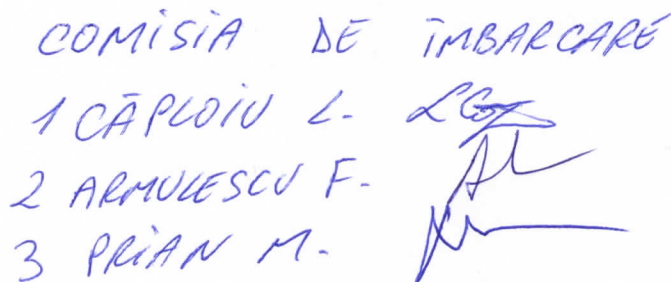 COMISIA DE ÎMBARCARE
1 CĂPLOIU L.
2 ARMULESCU F.
3 PRIAN M.